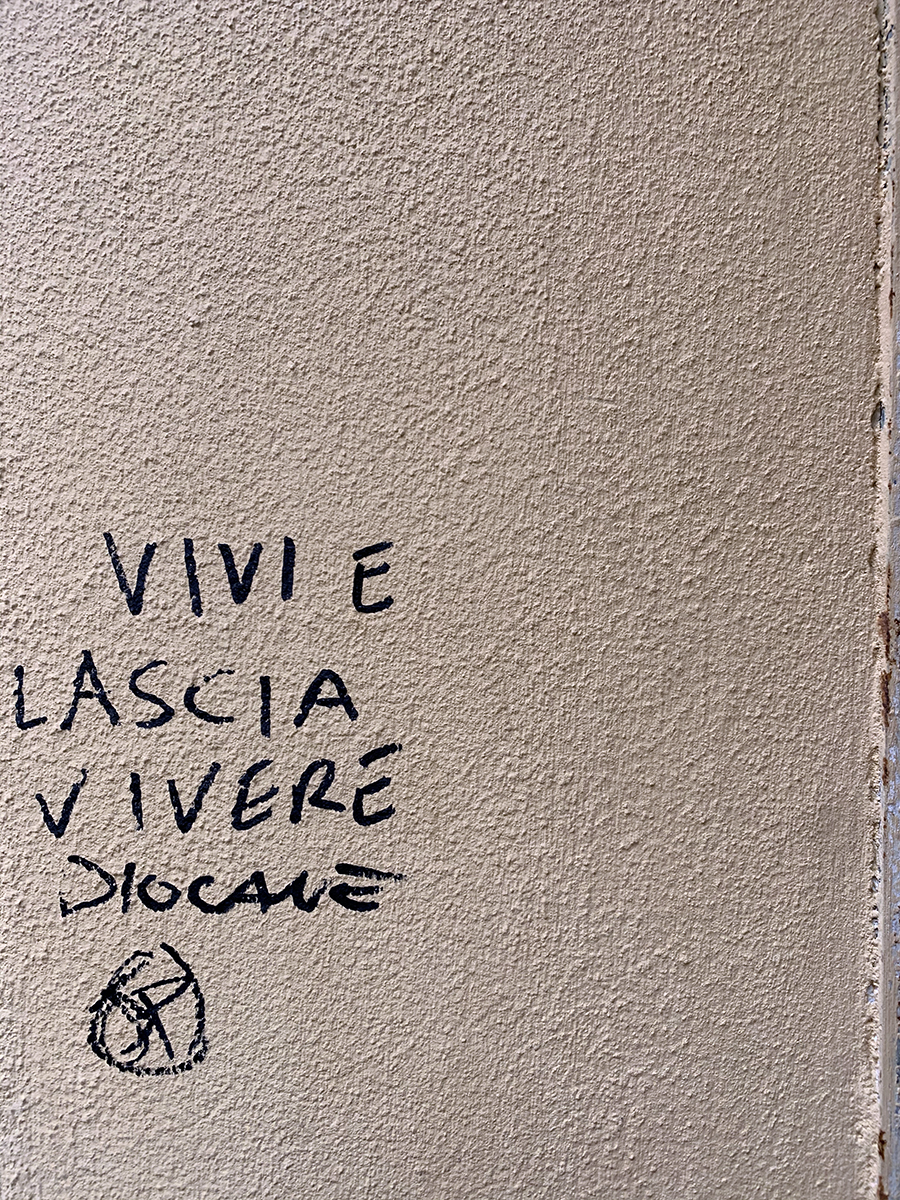 VIVI E
LASCIA
VIVERE
DIOCANE